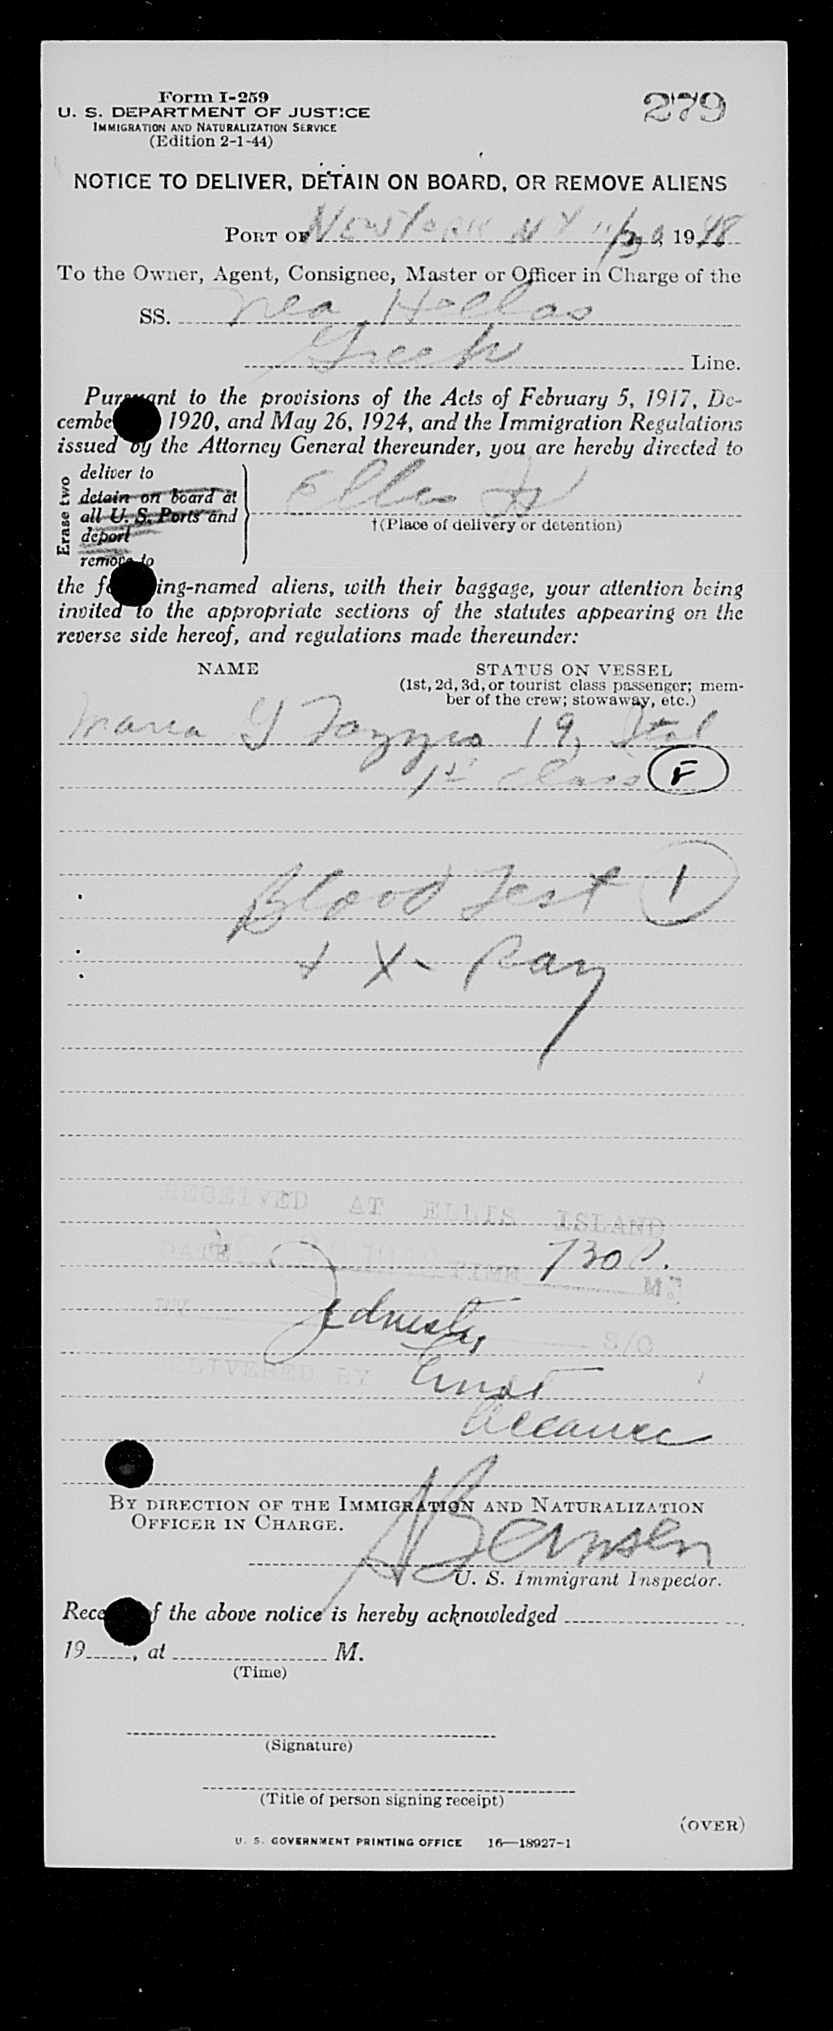 Form I-259
279
U. S. DEPARTMENT OF JUSTICE
IMMIGRATION AND NATURALIZATION SERVICE
(Edition 2-1-44)
NOTICE TO DELIVER, DETAIN ON BOARD, OR REMOVE ALIENS
PORT OF New York N Y 11/30, 1948
To the Owner, Agent, Consignee, Master or Officer in Charge of the
SS. Nea Hellas
Greek Line.
Pursuant to the provisions of the Acts of February 5, 1917, De-
cembe 1920, and May 26, 1924, and the Immigration Regulations
issued by the Attorney General thereunder, you are hereby directed to
Erase two
deliver to
detain on board at
all U. S. Ports and
deport
remove to
Ellis Is
†(Place of delivery or detention)
the f ing-named aliens, with their baggage, your attention being
invited to the appropriate sections of the statutes appearing on the
reverse side hereof, and regulations made thereunder:
NAME
STATUS ON VESSEL
(1st, 2d, 3d, or tourist class passenger; mem-
ber of the crew; stowaway, etc.)
Maria G 19, Ital
1st class F
Blood Test 1
+ X-Ray
RECEIVED AT ELLIS ISLAND
DATE TIME 730 P. M.
BY S/O
DELIVERED BY
BY DIRECTION OF THE IMMIGRATION AND NATURALIZATION
OFFICER IN CHARGE.
U. S. Immigrant Inspector.
Rece f the above notice is hereby acknowledged
19 , at M.
(Time)
(Signature)
(Title of person signing receipt)
(OVER)
U. S. GOVERNMENT PRINTING OFFICE 16—18927-1